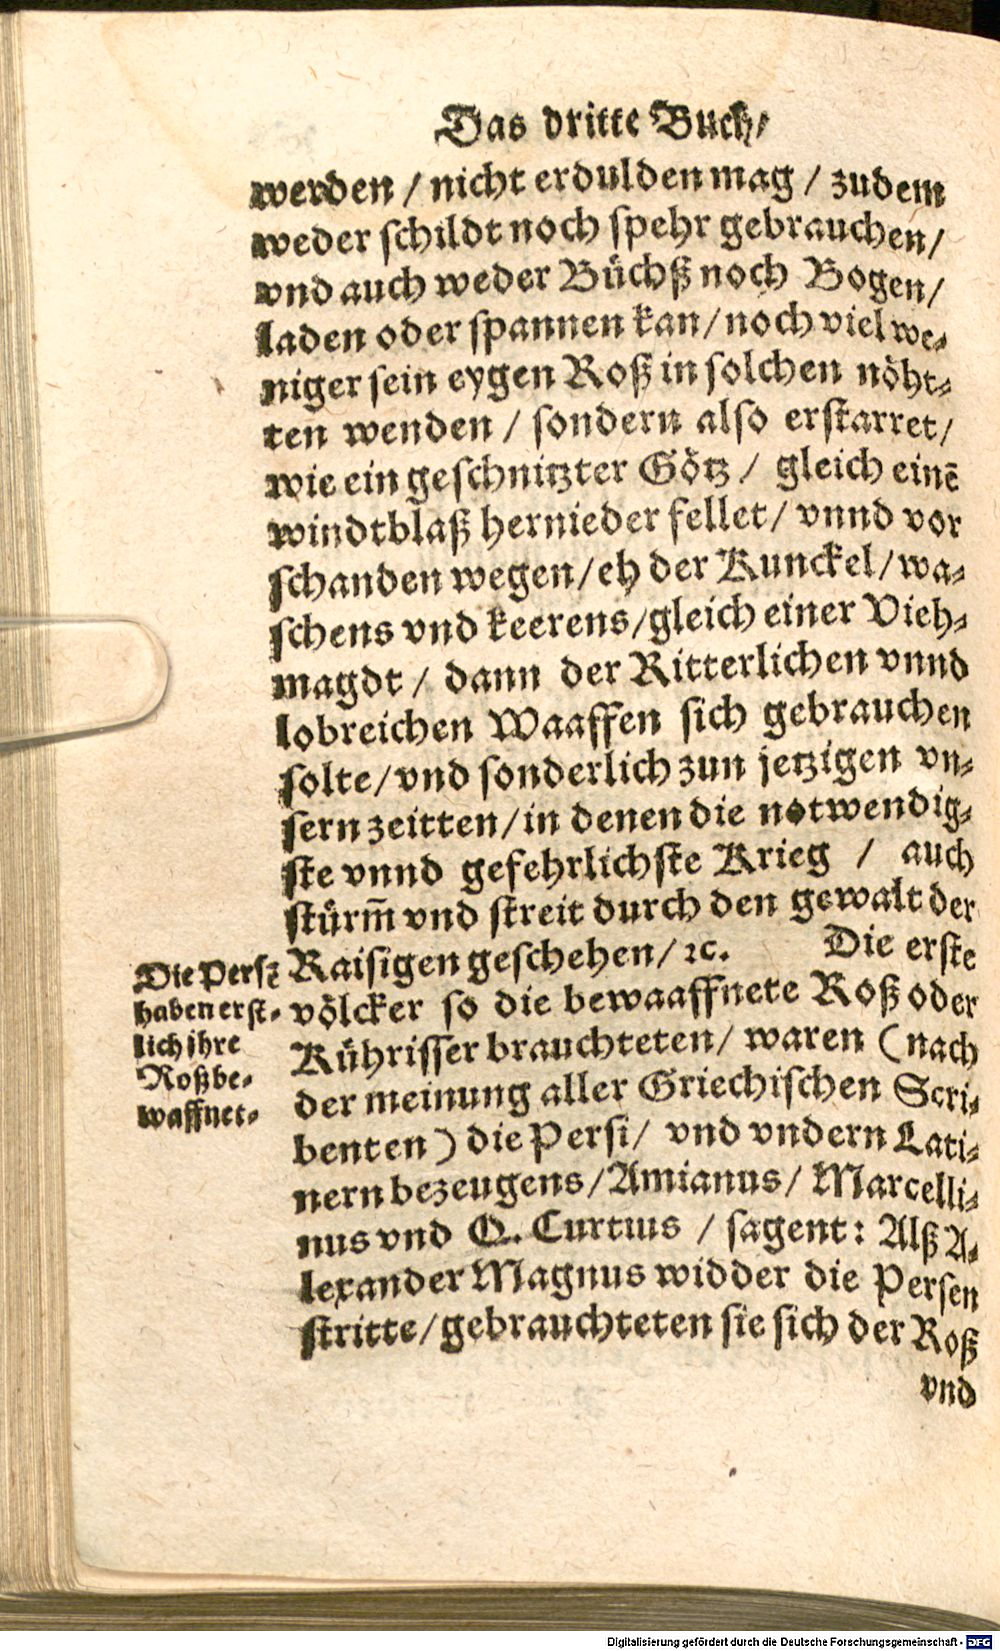 Das dritte Buch/
werden / nicht erdulden mag / zudem
weder schildt noch spehr gebrauchen/
vnd auch weder Büchß noch Bogen/
laden oder spannen kan/noch viel we-
niger sein eygen Roß in solchen nöht-
ten wenden / sondern also erstarret/
wie ein geschnitzter Götz / gleich einē
windtblaß hernieder fellet/ vnnd vor
schanden wegen/eh der Kunckel/wa-
schens vnd keerens/gleich einer Vieh-
magdt / dann der Ritterlichen vnnd
lobreichen Waaffen sich gebrauchen
solte/vnd sonderlich zun jetzigen vn-
sern zeitten/in denen die notwendig-
ste vnnd gefehrlichste Krieg / auch
stürm̄ vnd streit durch den gewalt der
Raisigen geschehen/ꝛc. Die erste
völcker so die bewaaffnete Roß oder
Kührisser brauchteten/ waren (nach
der meinung aller Griechischen Scri-
benten) die Persi/ vnd vndern Lati-
nern bezeugens/Amianus/ Marcelli-
nus vnd Q. Curtius / sagent: Alß A-
lexander Magnus widder die Persen
stritte/gebrauchteten sie sich der Roß
vnd
Die Persē
haben erst-
lich ihre
Roß be-
waffnet-
Digitalisierung gefördert durch die Deutsche Forschungsgemeinschaft - DFG